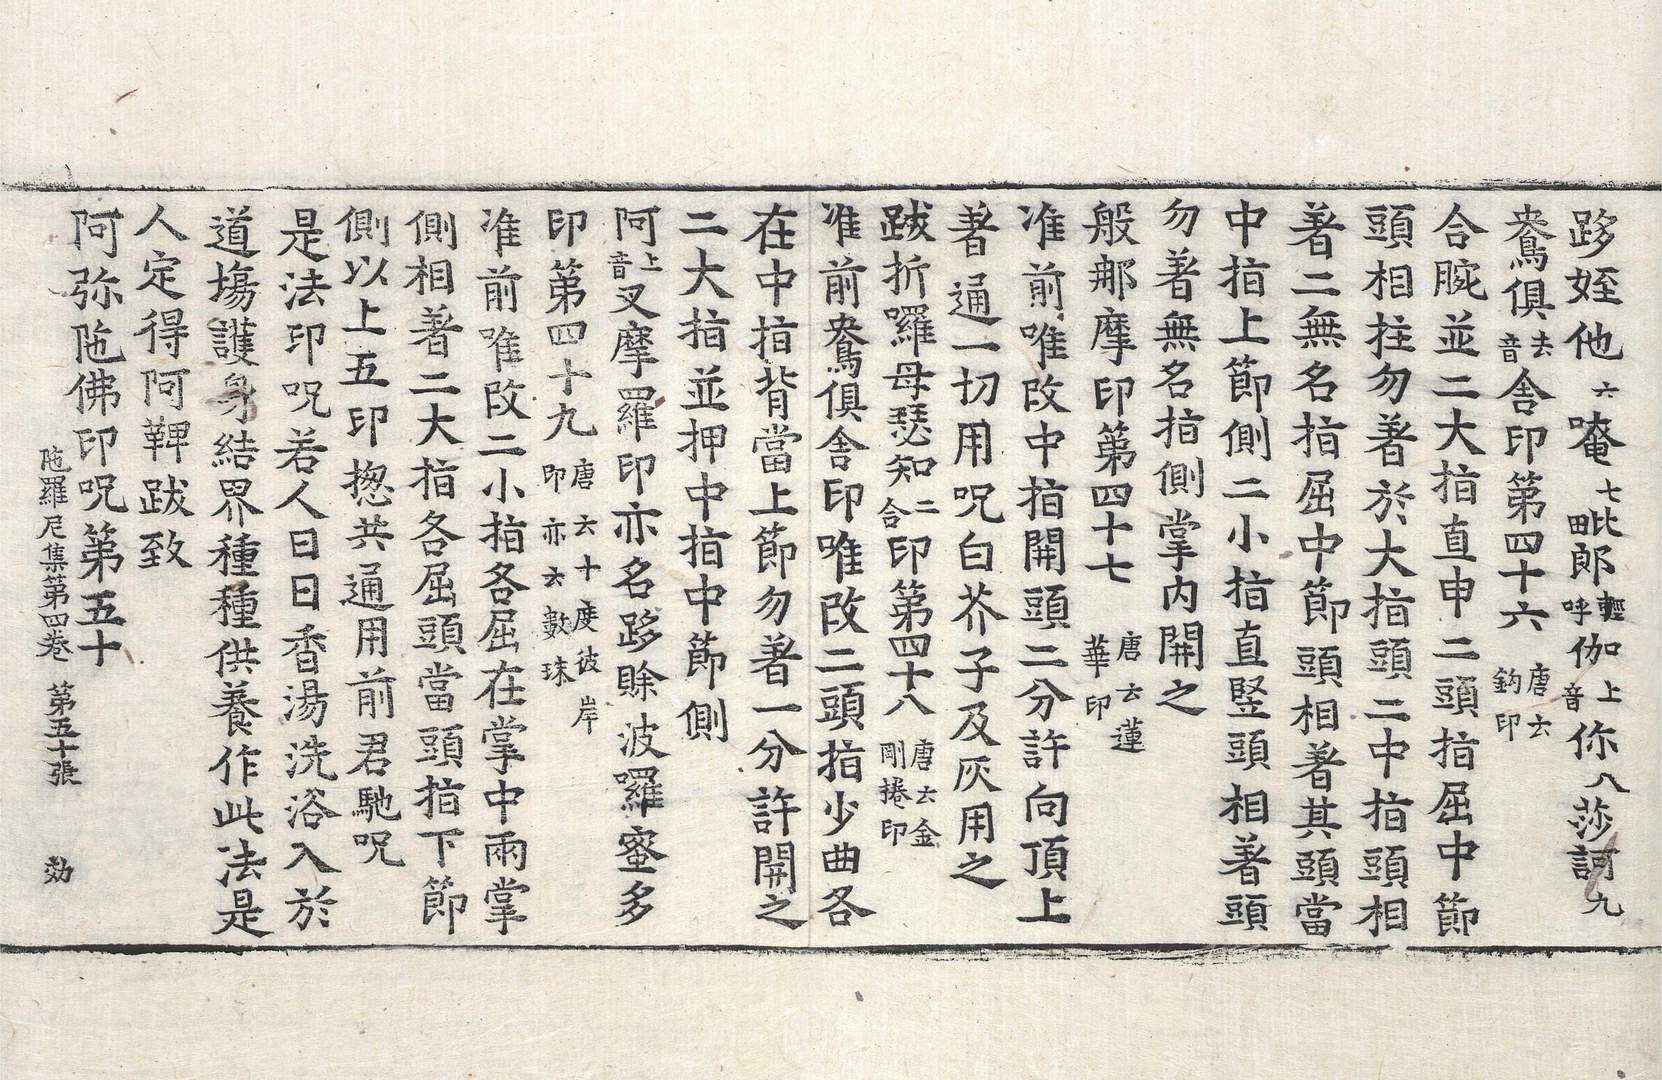 跢姪他六唵七毗𤱶郎輕呼伽上音你八莎訶九
鴦俱去音舍印第四十六唐云鈎印
合腕並二大指直申二頭指屈中節
頭相拄勿著於大指頭二中指頭相
著二無名指屈中節頭相著其頭當
中指上節側二小指直竪頭相著頭
勿著無名指側掌內開之
般那摩印第四十七唐云蓮華印
准前唯改中指開頭二分許向頂上
著通一切用呪白芥子及灰用之
跋折囉母瑟知二合印第四十八唐云金剛捲印
准前鴦俱舍印唯改二頭指少曲各
在中指背當上節勿著一分許開之
二大指並押中指中節側
阿上音叉摩羅印亦名跢賒波囉蜜多
印第四十九唐云十度彼岸印亦云數珠
准前唯改二小指各屈在掌中兩掌
側相著二大指各屈頭當頭指下節
側以上五印揔共通用前君馳呪
是法印呪若人日日香湯洗浴入於
道塲護身結界種種供養作此法是
人定得阿鞞跋致
阿弥陁佛印呪第五十
陁羅尼集第四卷 第五十張 効